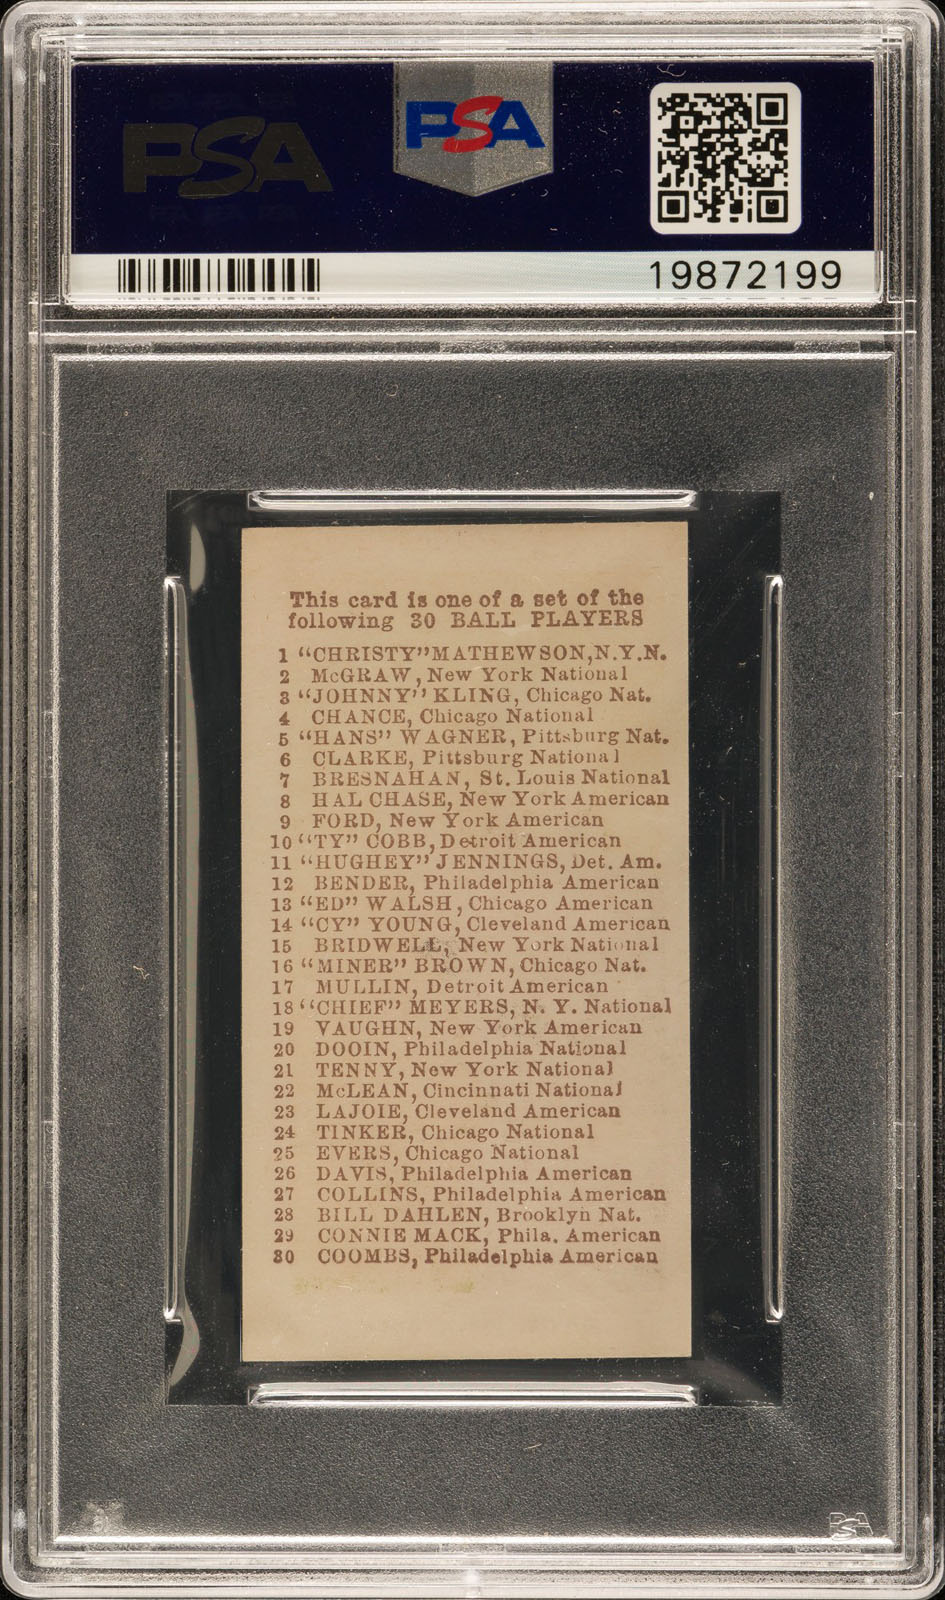 PSA
PSA
19872199
This card is one of a set of the
following 30 BALL PLAYERS
1 "CHRISTY" MATHEWSON, N.Y.N.
2 McGRAW, New York National
3 "JOHNNY" KLING, Chicago Nat.
4 CHANCE, Chicago National
5 "HANS" WAGNER, Pittsburg Nat.
6 CLARKE, Pittsburg National
7 BRESNAHAN, St. Louis National
8 HAL CHASE, New York American
9 FORD, New York American
10 "TY" COBB, Detroit American
11 "HUGHEY" JENNINGS, Det. Am.
12 BENDER, Philadelphia American
13 "ED" WALSH, Chicago American
14 "CY" YOUNG, Cleveland American
15 BRIDWELL, New York National
16 "MINER" BROWN, Chicago Nat.
17 MULLIN, Detroit American
18 "CHIEF" MEYERS, N. Y. National
19 VAUGHN, New York American
20 DOOIN, Philadelphia National
21 TENNY, New York National
22 McLEAN, Cincinnati National
23 LAJOIE, Cleveland American
24 TINKER, Chicago National
25 EVERS, Chicago National
26 DAVIS, Philadelphia American
27 COLLINS, Philadelphia American
28 BILL DAHLEN, Brooklyn Nat.
29 CONNIE MACK, Phila. American
30 COOMBS, Philadelphia American
PSA